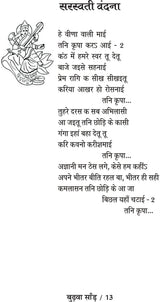 सरस्वती वंदना
हे वीणा वाली माई
तनि कृपा करऽ आई - 2
कंठ में हमरे स्वर तू देतू
बाजे जइसे सहनाई
प्रेम रागि क सीख सीखइतू
करिया आखर हो रोसनाई
तनि कृपा...
तुहरे दरस क सब अभिलासी
आ जइतू तनि छोड़ि के कासी
गंगा इहां बहा देतू तू
करि कवनो करीशमाई
तनि कृपा...
अज्ञानी मन ठेस लगे, केसे हम कहींऽ
अपने भीतर बीति रहल बा, भीतर ही सही
कमलासन तनि छोड़ि के आ जा
बिछल यहाँ चटाई - 2
तनि कृपा...
बुढ़वा साँड़ / 13